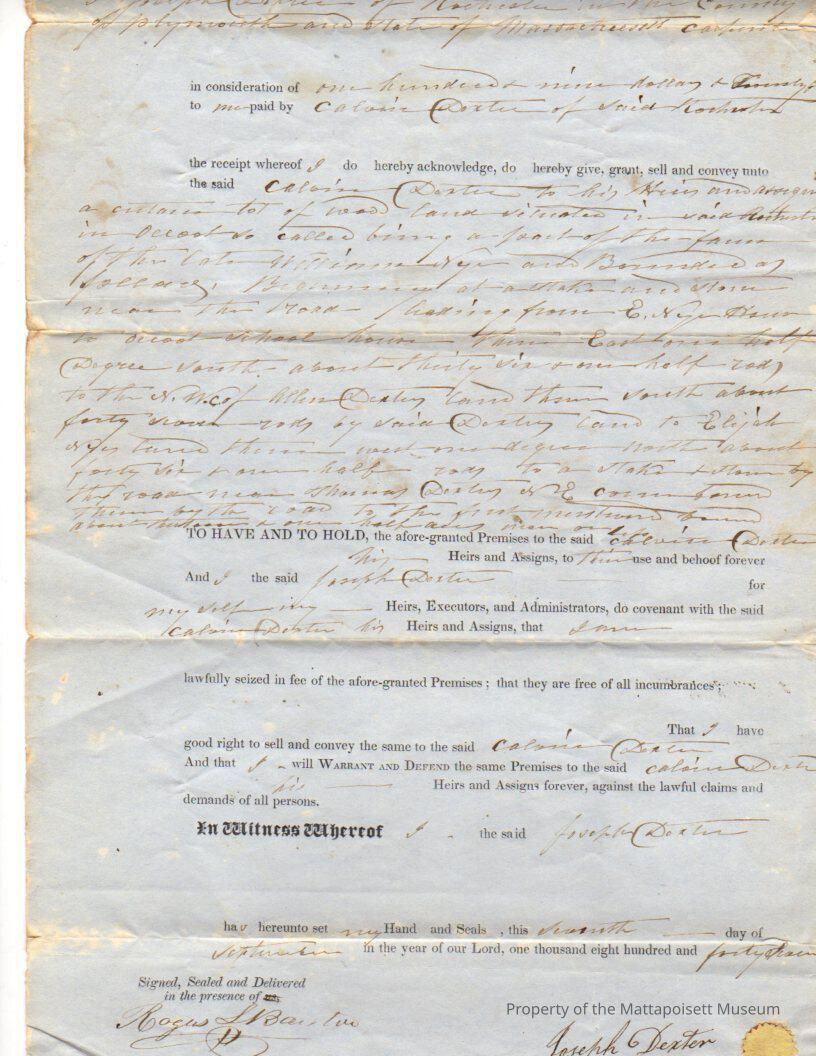 I Joseph Dexter of Rochester in the County
of Plymouth and State of Massachusett Carpenter
in consideration of one hundred & nine dollars & Twenty
to me paid by Calvin Dexter of said Rochester
the receipt whereof I do hereby acknowledge, do hereby give, grant, sell and convey unto
the said Calvin Dexter to his Heirs and assigns
a certain lot of wood land situated in said Rochester
in so called being a part of the farm
of the late William Nye and Bounded as
follows, Beginning at a stake and stone
near the road leading from E. Nye House
to school house thence East one half
Degree south about thirty six & one half rods
to the N.W. of Allen Dexters land thence south about
forty seven rods by said Dexters land to Elijah
Nyes land thence west one degree North about
forty six & one half rods to a stake & stone by
the road near Thomas Dexters N E corner bound
thence by the road to the first mentioned bound
about & one half acres more or
TO HAVE AND TO HOLD, the afore-granted Premises to the said Calvin Dexter
his Heirs and Assigns, to their use and behoof forever
And I the said Joseph Dexter for
my self my Heirs, Executors, and Administrators, do covenant with the said
Calvin Dexter his Heirs and Assigns, that I am
lawfully seized in fee of the afore-granted Premises ; that they are free of all incumbrances ;
That I have
good right to sell and convey the same to the said Calvin Dexter
And that I will WARRANT AND DEFEND the same Premises to the said Calvin Dexter
his Heirs and Assigns forever, against the lawful claims and
demands of all persons.
In Witness Whereof I the said Joseph Dexter
hav hereunto set my Hand and Seals , this seventh day of
September in the year of our Lord, one thousand eight hundred and forty seven
Signed, Sealed and Delivered
in the presence of us,
Rogers L Barstow
Joseph Dexter
Property of the Mattapoisett Museum